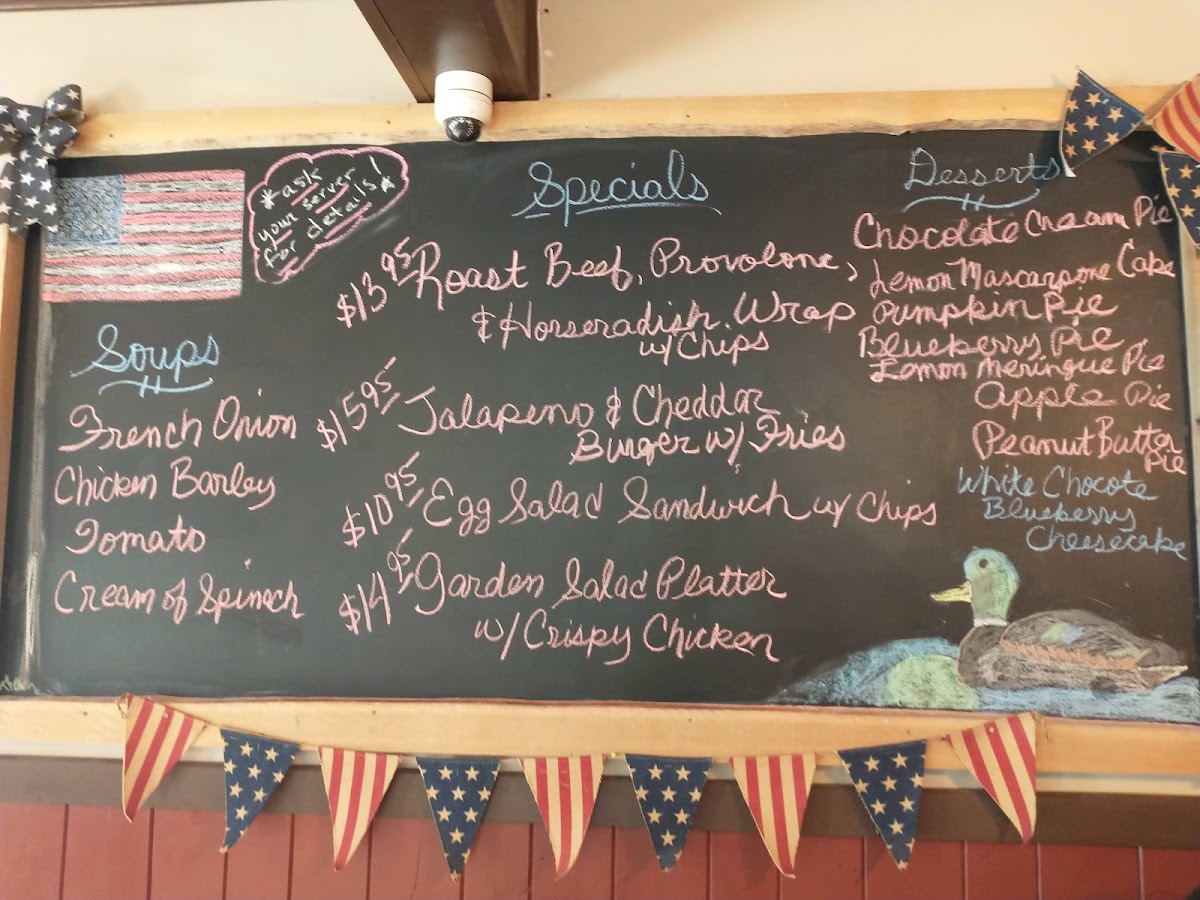 *ask
your server
for details!*
Soups
French Onion
Chicken Barley
Tomato
Cream of Spinach
Specials
$13.95 Roast Beef, Provolone,
& Horseradish Wrap
w/ Chips
$15.95 Jalapeno & Cheddar
Burger w/ Fries
$10.95 Egg Salad Sandwich w/ Chips
$14.95 Garden Salad Platter
w/ Crispy Chicken
Desserts
Chocolate Cream Pie
Lemon Mascarpone Cake
Pumpkin Pie
Blueberry Pie
Lemon Meringue Pie
Apple Pie
Peanut Butter
Pie
White Chocote
Blueberry
Cheesecake